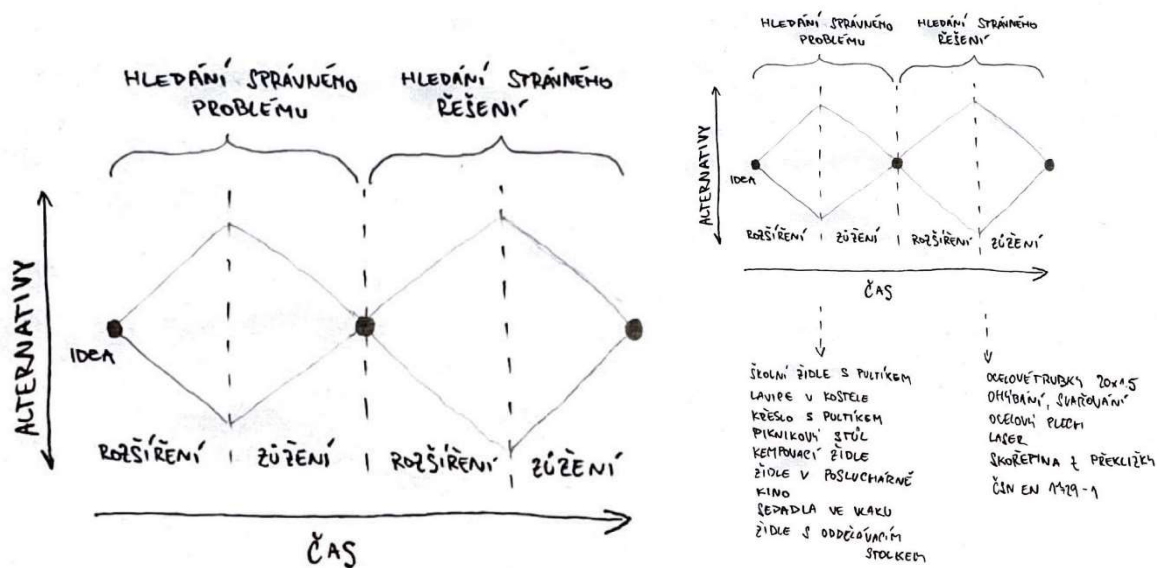 HLEDÁNÍ SPRÁVNÉHO
PROBLÉMU
HLEDÁNÍ STRÁVNÉHO
ŘEŠENÍ
ALTERNATIVY
IDEA
ROZŠÍŘENÍ
ZÚŽENÍ
ROZŠÍŘENÍ
ZÚŽENÍ
ČAS
HLEDÁNÍ SPRÁVNÉHO
PROBLÉMU
HLEDÁNÍ STRÁVNÉHO
ŘEŠENÍ
ALTERNATIVY
IDEA
ROZŠÍŘENÍ
ZÚŽENÍ
ROZŠÍŘENÍ
ZÚŽENÍ
ČAS
ŠKOLNÍ ŽIDLE S PULTÍKEM
LAVICE V KOSTELE
KŘESLO S PULTÍKEM
PIKNIKOVÝ STŮL
KEMPOVACÍ ŽIDLE
ŽIDLE V POSLUCHÁRNĚ
KINO
SEDADLA VE VLAKU
ŽIDLE S ODDĚLÁVACÍM
STOLKEM
OCELOVÉ TRUBKY 20x1.5
OHÝBÁNÍ, SVAŘOVÁNÍ
OCELOVÝ PLECH
LASER
SKOŘEPINA Z PŘEKLIŽKY
ČSN EN 1729-1